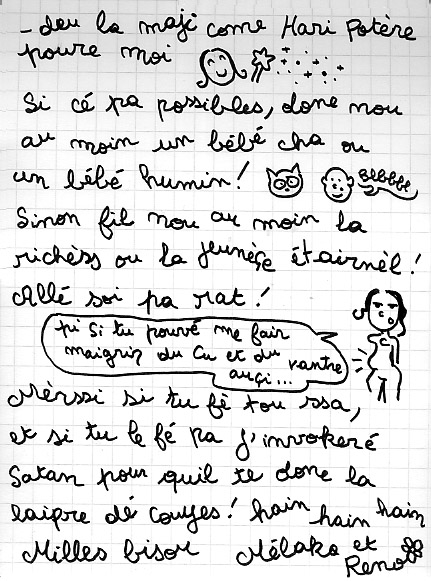 - deu la maji come Hari Potère
poure moi
Si cé pa possibles, done nou
au moin un bébé cha ou
un bébé humin!
Blbbbe
Sinon fil nou au moin la
richèss ou la jeunèçe étairnèl!
Allé soi pa rat!
pi si tu pouvé me fair
maigrir du Cu et du vantre
auçi...
Mèrssi si tu fè tou ssa,
et si tu le fé pa j'invokeré
Satan pour quil te done la
laipre dé couyes! hain hain hain
Milles bisou Mélaka et
Reno